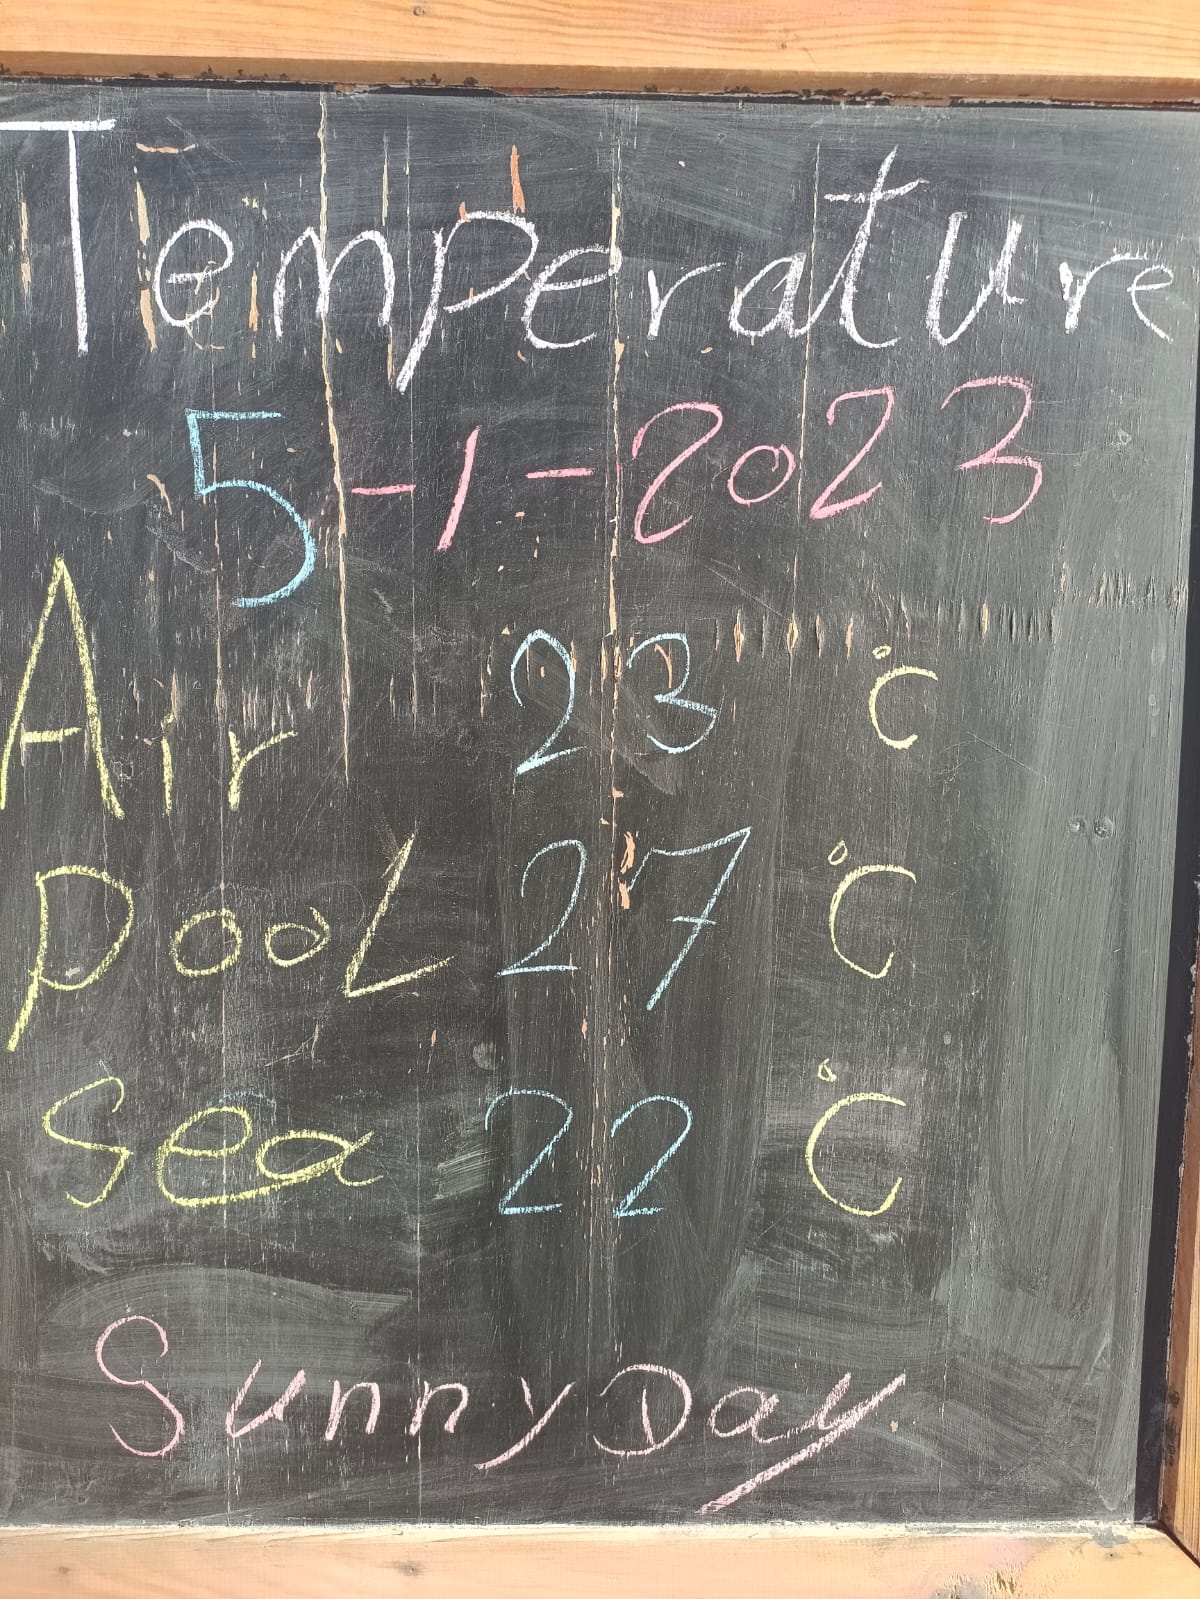 Temperature
5-1-2023
Air 23 °C
Pool 27 °C
Sea 22 °C
Sunny Day